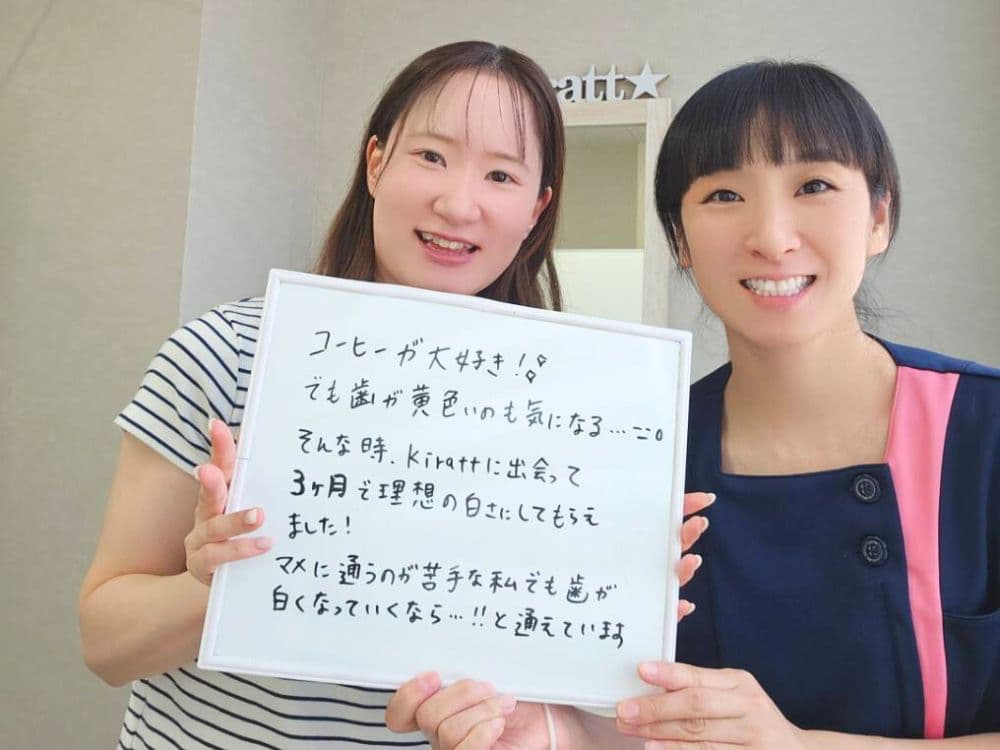 ratt★
コーヒーが大好き!
でも歯が黄色いのも気になる…
そんな時、Kirattに出会って
3ヶ月で理想の白さにしてもらえ
ました!
マメに通うのが苦手な私でも歯が
白くなっていくなら…!!と通えています